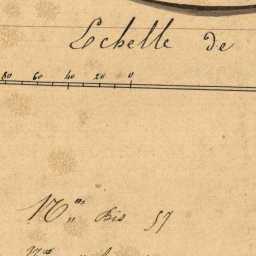 Echelle de
80 60 40 20 0
N.os Bis 57